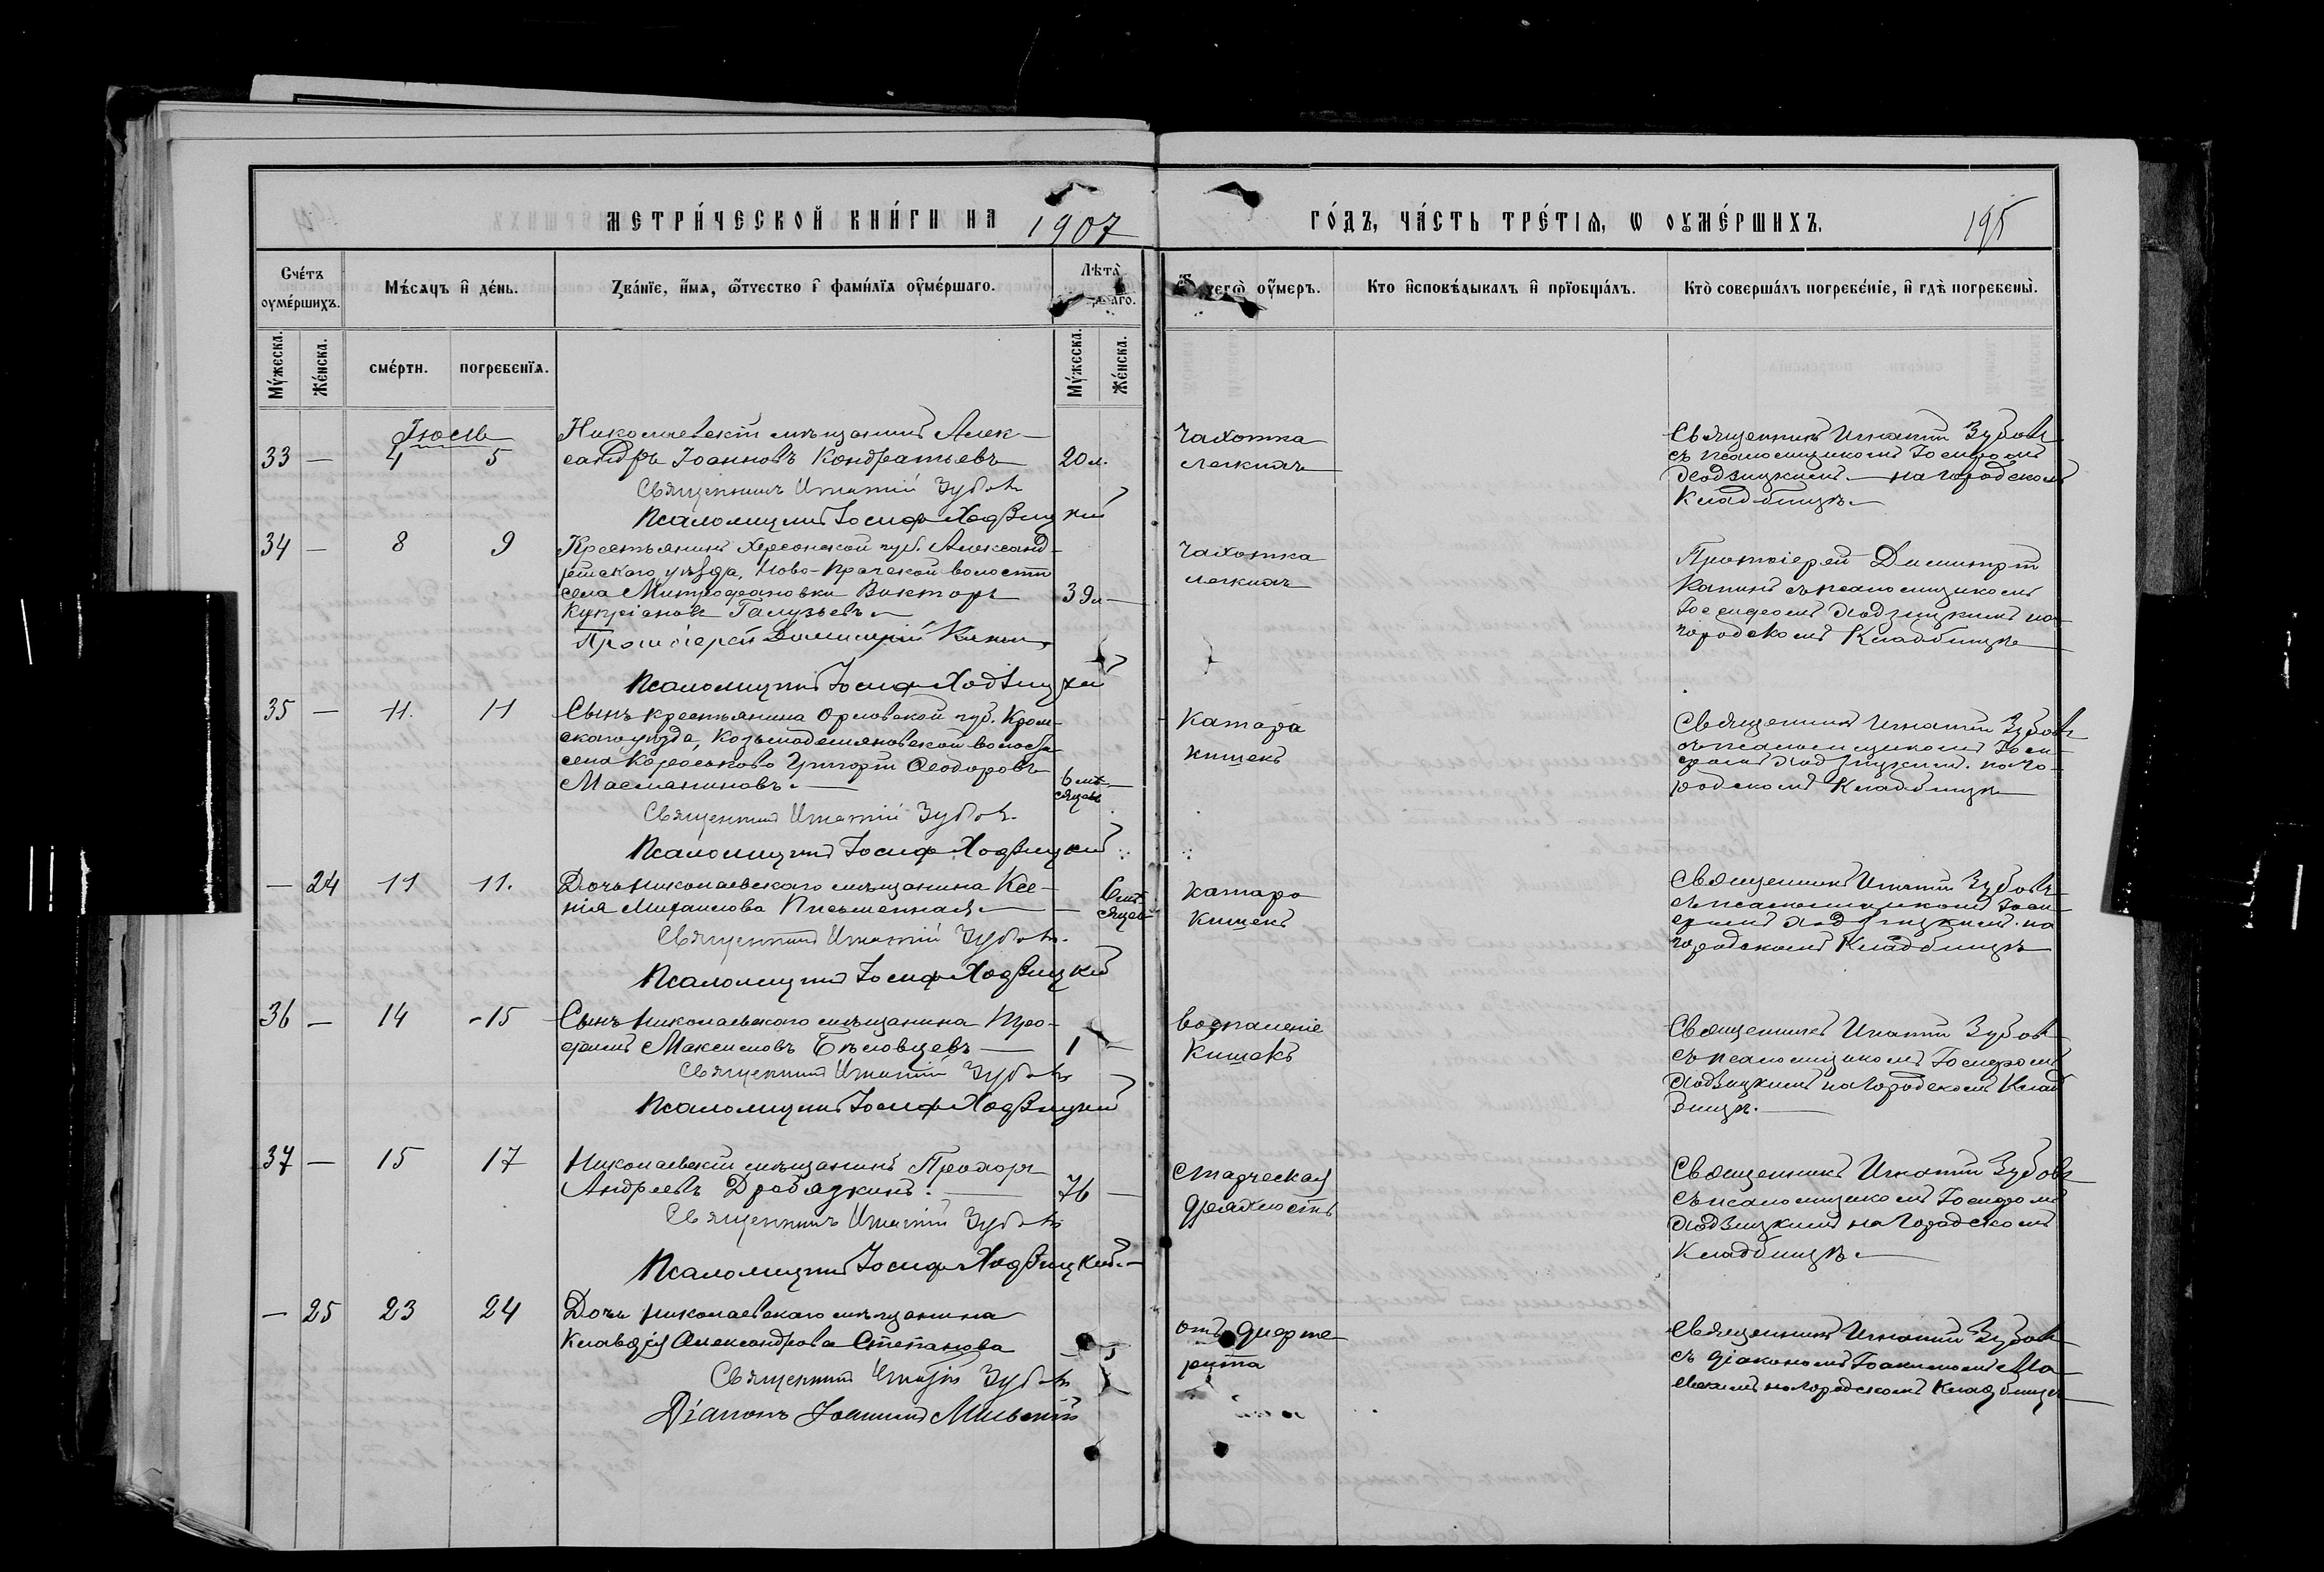 МЕТРИ́ЧЕСКОЙ КНИ́ГИ НА 1907 ГО́ДЪ, ЧА́СТЬ ТРЕ́ТІѦ, Ѡ ОУМЕ́РШИХЪ. 195
Сче́тъ оуме́ршихъ.
Мѣ́сѧцъ и҆ де́нь.
Ꙁва́нїе, и҆́мѧ, ѻ҆́тчество и҆ фами́лїѧ оуме́ршаго.
Лѣта̀
Кто и҆сповѣ́дывалъ и҆ прїобща́лъ.
Кто̀ соверша́лъ погребе́нїе, и҆ гдѣ̀ погребены̀.
Му́жеска.
Же́нска.
сме́рти.
погребенїѧ.
Му́жеска.
Же́нска.
Іюль
33 — 4 5
Николаевскій мѣщанинъ Алек-
сандръ Іоанновъ Кондратьевъ — 20 л.
Священникъ Игнатій Зубовъ
Псаломщикъ Іосифъ Ходзицкій
Чахотка
легкихъ
Священникъ Игнатій Зубовъ
съ псаломщикомъ Іосифомъ
Ходзицкимъ — на городскомъ
Кладбищѣ.—
34 — 8 9
Крестьянинъ Херсонской губ. Александ-
рійскаго уѣзда, Ново-Прагской волости
села Митрофановки Викторъ
Купріановъ Галузьевъ — 39 л —
Протоіерей Димитрій Канинъ
Псаломщикъ Іосифъ Ходзицкій
Чахотка
легкихъ
Протоіерей Димитрій
Канинъ съ псаломщикомъ
Іосифомъ Ходзицкимъ на
городскомъ Кладбищѣ
35 — 11. 11
Сынъ крестьянина Орловской губ. Кром-
скаго уѣзда, Козьмодемьяновской волости
села Короськово Григорій Ѳеодоровъ
Масманиновъ. — 6 мѣ-
сяцевъ
Священникъ Игнатій Зубовъ
Псаломщикъ Іосифъ Ходзицкій
Катара
кишекъ
Священникъ Игнатій Зубовъ
съ псаломщикомъ Іоси-
фомъ Ходзицкимъ. на го-
родскомъ Кладбищѣ
— 24 11 11.
Дочь Николаевскаго мѣщанина Ксе-
нія Михаилова Письменная — 6 мѣ-
сяцев
Священникъ Игнатій Зубовъ.
Псаломщикъ Іосифъ Ходзицкій
катара
кишекъ
Священникъ Игнатій Зубовъ
съ псаломщикомъ Іоси-
фомъ Ходзицкимъ. на
городскомъ Кладбищѣ
36 — 14 15
Сынъ Николаевскаго мѣщанина Тро-
фимъ Максимовъ Бѣловцевъ — 1 —
Священникъ Игнатій Зубовъ
Псаломщикъ Іосифъ Ходзицкій
воспаленіе
Кишекъ
Священникъ Игнатій Зубовъ
съ псаломщикомъ Іосифомъ
Ходзицкимъ на городскомъ Клад
бищѣ. —
37 — 15 17
Николаевскій мѣщанинъ Прохоръ
Андреевъ Дробязкинъ. — 76 —
Священникъ Игнатій Зубовъ
Псаломщикъ Іосифъ Ходзицкій. —
Старческая
дряхлость
Священникъ Игнатій Зубовъ
съ псаломщикомъ Іосифомъ
Ходзицкимъ на городскомъ
Кладбищѣ. —
— 25 23 24
Дочь Николаевскаго мѣщанина
Клавдія Александрова Степанова
Священникъ Игнатій Зубовъ
Діаконъ Іоакимъ Мильскій
отъ дифте
рита
Священникъ Игнатій Зубовъ
съ діакономъ Іоакимомъ
на городскомъ Кладбищѣ